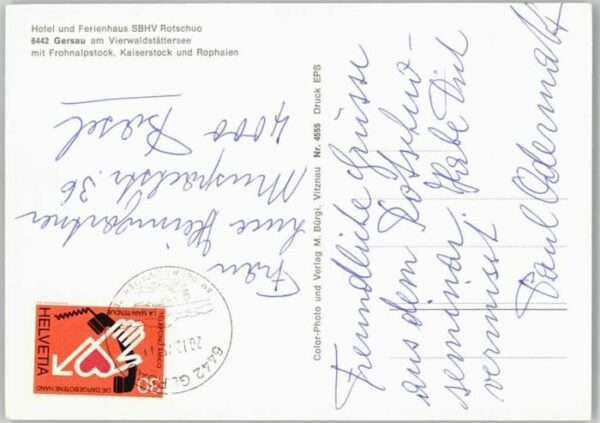 Hotel und Ferienhaus SBHV Rotschuo
6442 Gersau am Vierwaldstättersee
mit Frohnalpstock, Kaiserstock und Rophaien
Color-Photo und Verlag M. Bürgi, Vitznau Nr. 4555 Druck EPS
Freundliche Grüsse
aus dem Rotschuo-
seminar. Habe Dich
vermisst.
Paul Odermatt
Frau
Luce Heimgartner
Muspachstr. 36
4000 Basel
HELVETIA
30
DIE DARGEBOTENE HAND
LA MAIN TENDUE
TELEFONO AMICO
6442 GERSAU